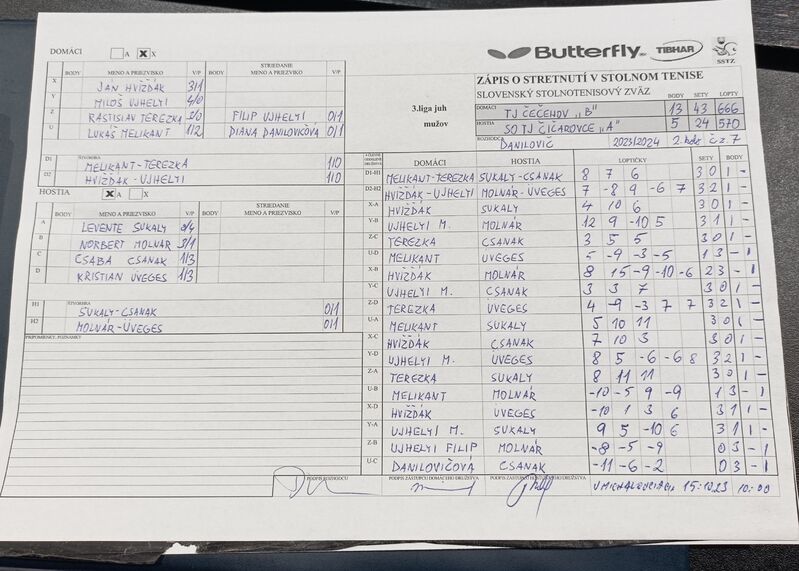 DOMÁCI A X X
Butterfly TIBHAR SSTZ
BODY MENO A PRIEZVISKO V/P STRIEDANIE BODY MENO A PRIEZVISKO V/P
X JAN HVIŽĎÁK 3/1
Y MILOŠ UJHELYI 4/0
Z RASTISLAV TEREZKA 3/0 FILIP UJHELYI 0/1
U LUKÁŠ MELIKANT 1/2 DIANA DANILOVIČOVÁ 0/1
ŠTVORHRA
D1 MELIKANT-TEREZKA 1/0
D2 HVIŽĎÁK-UJHELYI 1/0
HOSTIA A X X
BODY MENO A PRIEZVISKO V/P STRIEDANIE BODY MENO A PRIEZVISKO V/P
A LEVENTE SUKALY 0/4
B NORBERT MOLNÁR 3/1
C CSABA CSANAK 1/3
D KRISTIAN ÜVEGES 1/3
ŠTVORHRA
H1 SUKALY-CSANAK 0/1
H2 MOLNÁR-ÜVEGES 0/1
PRIPOMIENKY, POZNÁMKY
3.liga juh
mužov
ZÁPIS O STRETNUTÍ V STOLNOM TENISE
SLOVENSKÝ STOLNOTENISOVÝ ZVÄZ BODY SETY LOPTY
DOMÁCI TJ ČEČEHOV „B" 13 43 666
HOSTIA SO TJ ČIČAROVCE „A" 5 24 570
ROZHODCA DANILOVIČ 2023/2024 2 kolo č.z. 7
DOMÁCI HOSTIA LOPTIČKY SETY BODY
D1-H1 MELIKANT-TEREZKA SUKALY-CSANAK 8 7 6 3 0 1 -
D2-H2 HVIŽĎÁK-UJHELYI MOLNÁR-ÜVEGES 7 -8 9 -6 7 3 2 1 -
X-A HVIŽĎÁK SUKALY 4 10 6 3 0 1 -
Y-B UJHELYI M. MOLNÁR 12 9 -10 5 3 1 1 -
Z-C TEREZKA CSANAK 3 5 5 3 0 1 -
U-D MELIKANT ÜVEGES 5 -9 -3 -5 1 3 - 1
X-B HVIŽĎÁK MOLNÁR 8 15 -9 -10 -6 2 3 - 1
Y-C UJHELYI M. CSANAK 3 3 7 3 0 1 -
Z-D TEREZKA ÜVEGES 4 -9 -3 7 7 3 2 1 -
U-A MELIKANT SUKALY 5 10 11 3 0 1 -
X-C HVIŽĎÁK CSANAK 7 10 3 3 0 1 -
Y-D UJHELYI M. ÜVEGES 8 5 -6 -6 8 3 2 1 -
Z-A TEREZKA SUKALY 8 11 11 3 0 1 -
U-B MELIKANT MOLNÁR -10 -5 9 -9 1 3 - 1
X-D HVIŽĎÁK ÜVEGES -10 1 3 6 3 1 1 -
Y-A UJHELYI M. SUKALY 9 5 -10 6 3 1 1 -
Z-B UJHELYI FILIP MOLNÁR -8 -5 -9 0 3 - 1
U-C DANILOVIČOVÁ CSANAK -11 -6 -2 0 3 - 1
PODPIS ROZHODCU PODPIS ZÁSTUPCU DOMÁCEHO DRUŽSTVA PODPIS ZÁSTUPCU HOSŤUJÚCEHO DRUŽSTVA V MICHALOVCIACH 15.10.23 10:00